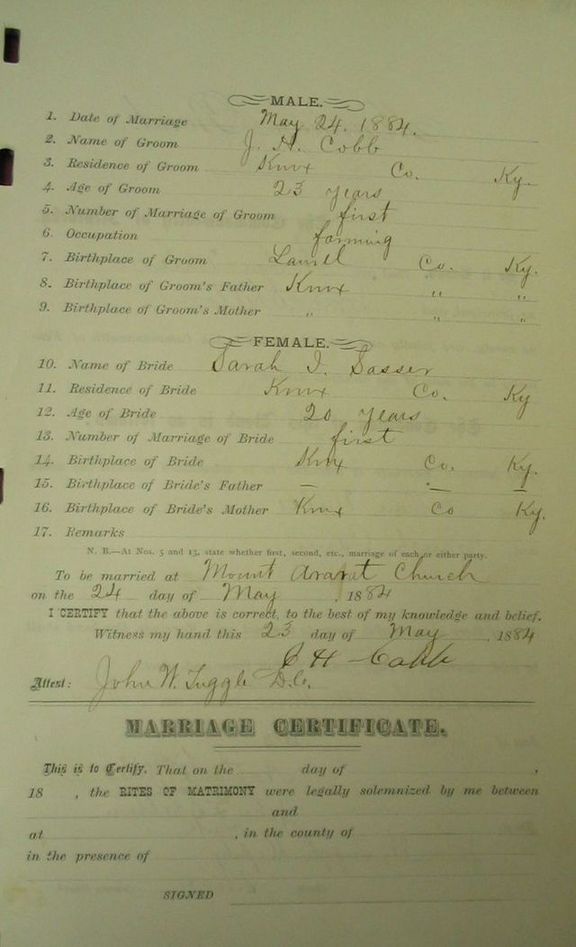 MALE.
1. Date of Marriage May 24. 1884.
2. Name of Groom J. H. Cobb
3. Residence of Groom Knox Co. Ky.
4. Age of Groom 23 years
5. Number of Marriage of Groom first
6. Occupation farming
7. Birthplace of Groom Laurel Co. Ky.
8. Birthplace of Groom's Father Knox " "
9. Birthplace of Groom's Mother " " "
FEMALE.
10. Name of Bride Sarah I. Sasser
11. Residence of Bride Knox Co. Ky
12. Age of Bride 20 years
13. Number of Marriage of Bride first
14. Birthplace of Bride Knx Co. Ky.
15. Birthplace of Bride's Father — — —
16. Birthplace of Bride's Mother Knox Co Ky.
17. Remarks
N. B.—At Nos. 5 and 13, state whether first, second, etc., marriage of each or either party.
To be married at Mount Ararat Church
on the 24 day of May, 1884
I CERTIFY that the above is correct, to the best of my knowledge and belief.
Witness my hand this 23 day of May, 1884
J H Cobb
Attest: John W. Tuggle D.C.
MARRIAGE CERTIFICATE.
This is to Certify, That on the day of ,
18 , the RITES OF MATRIMONY were legally solemnized by me between
and
at , in the county of
in the presence of
SIGNED